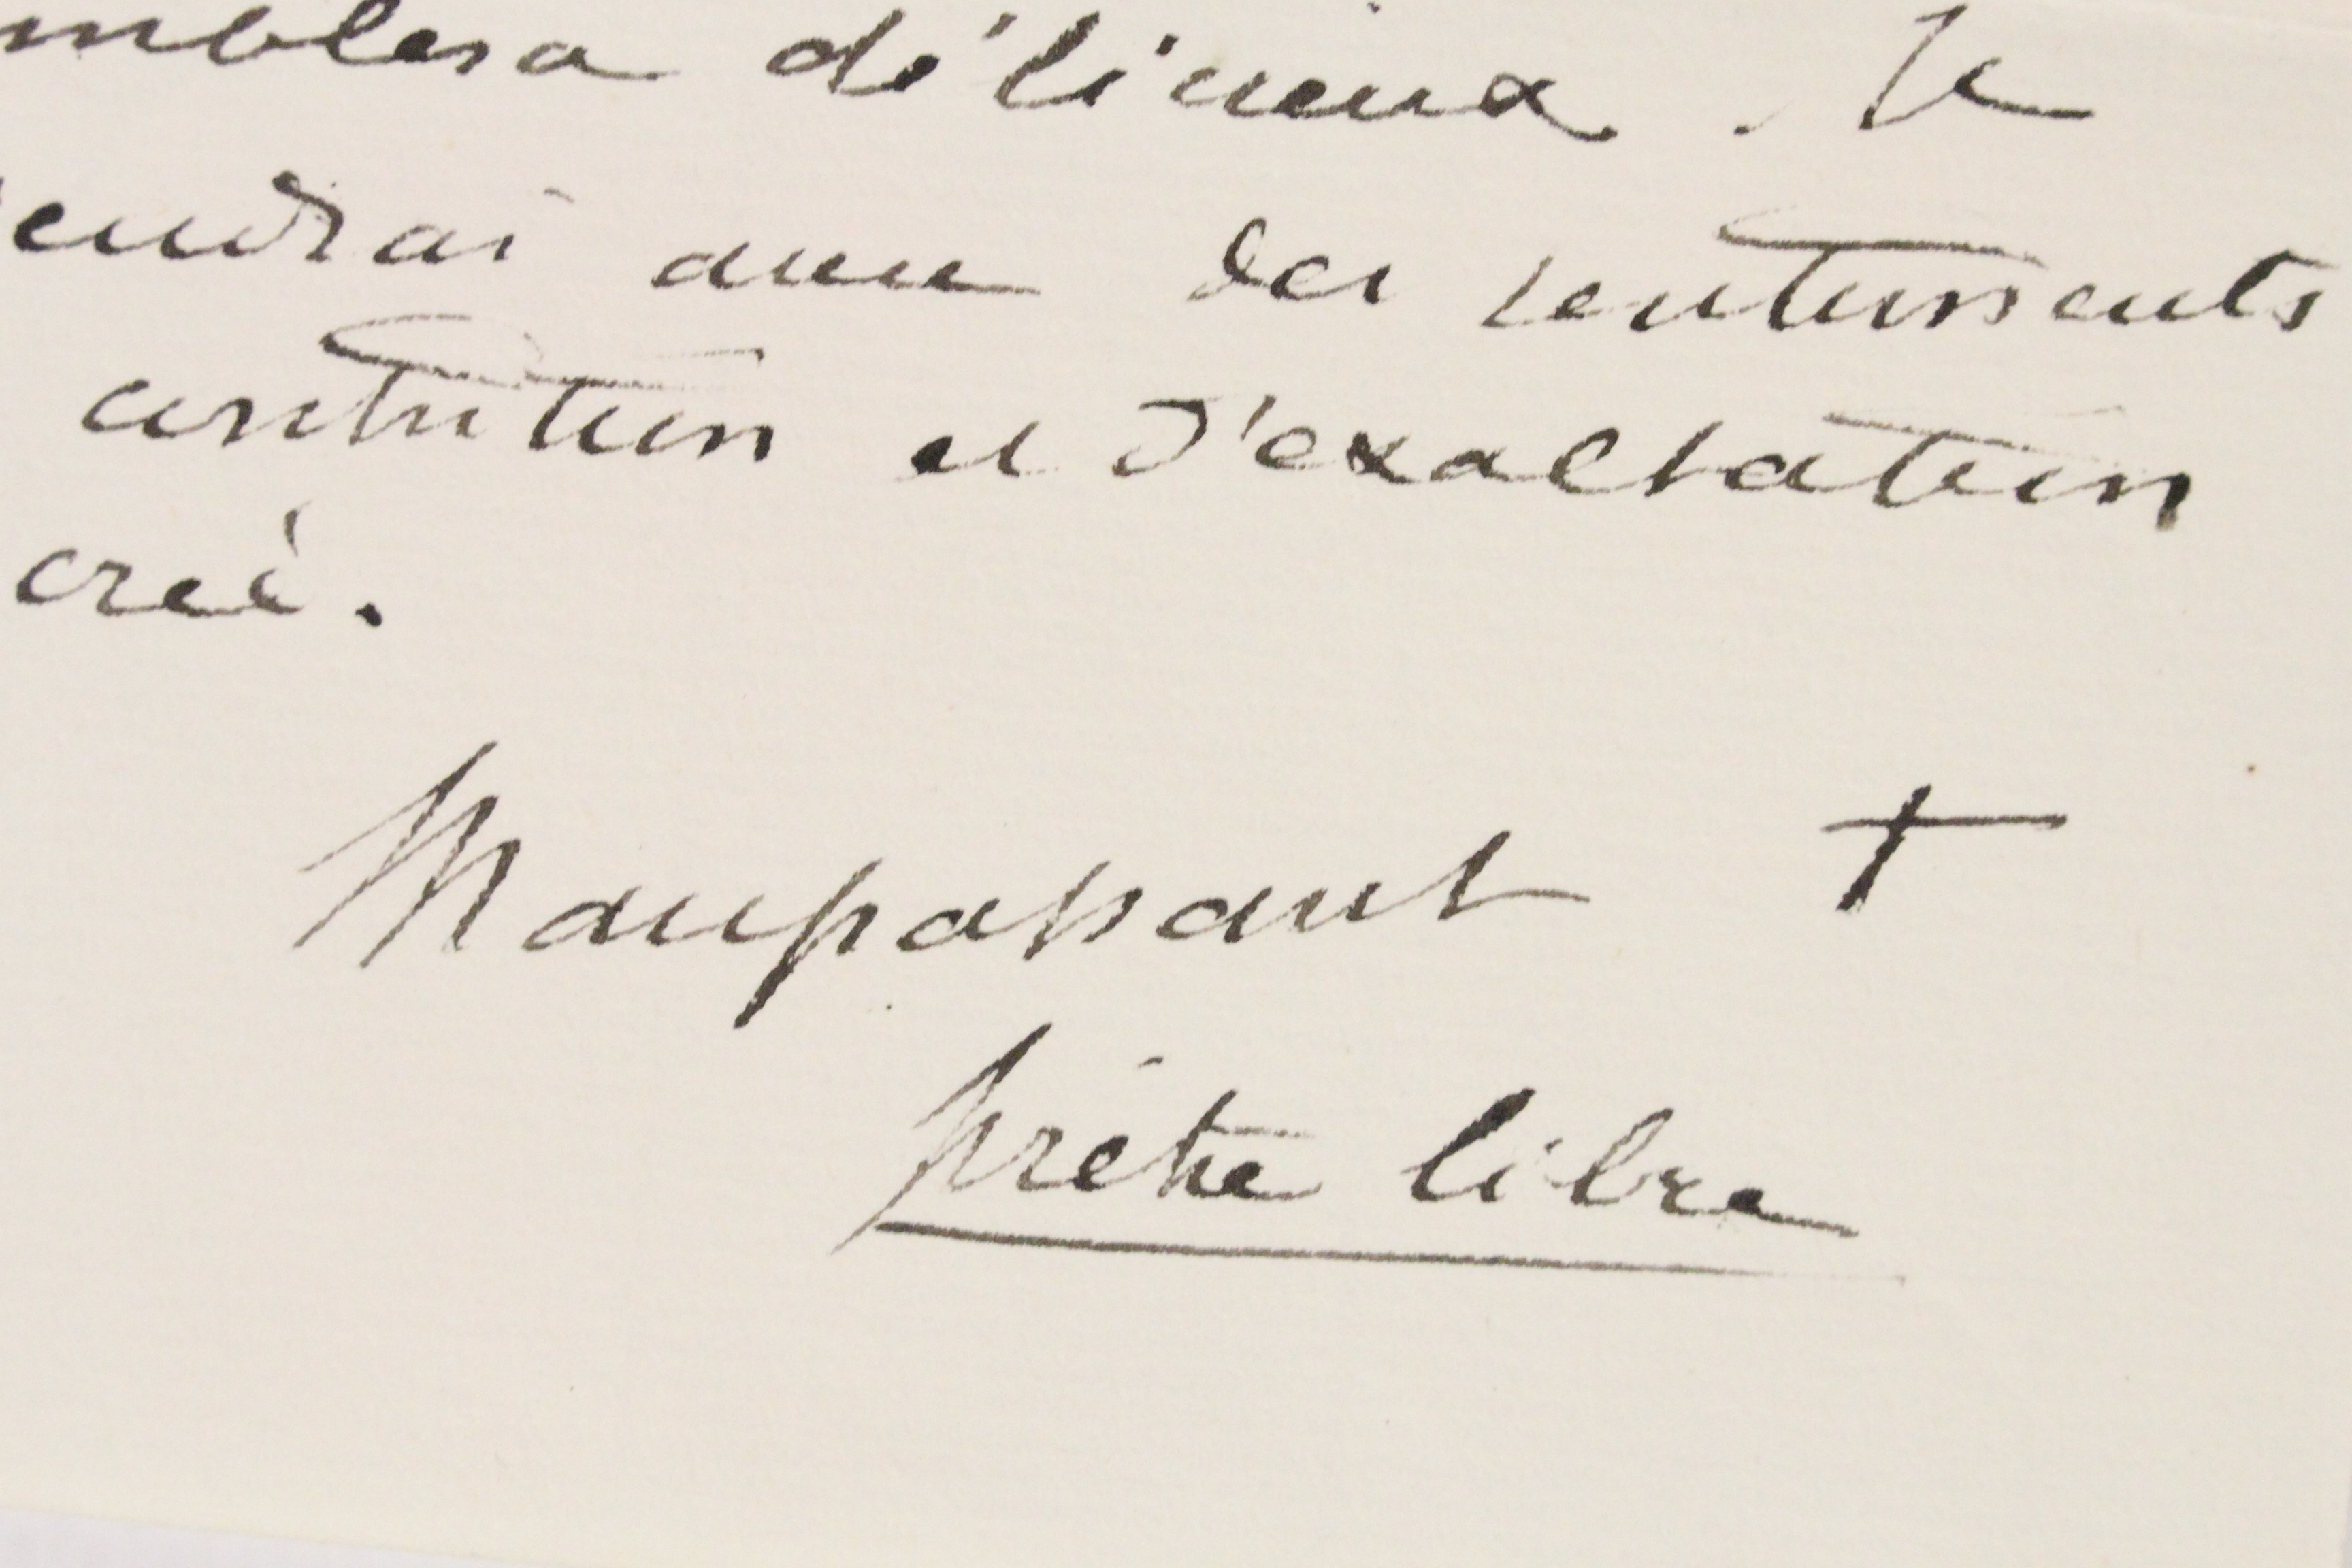 mblera délicieux. Je
endrai avec des sentiments
contrition et d'exaltation
cré.
Maupassant †
prêtre libre